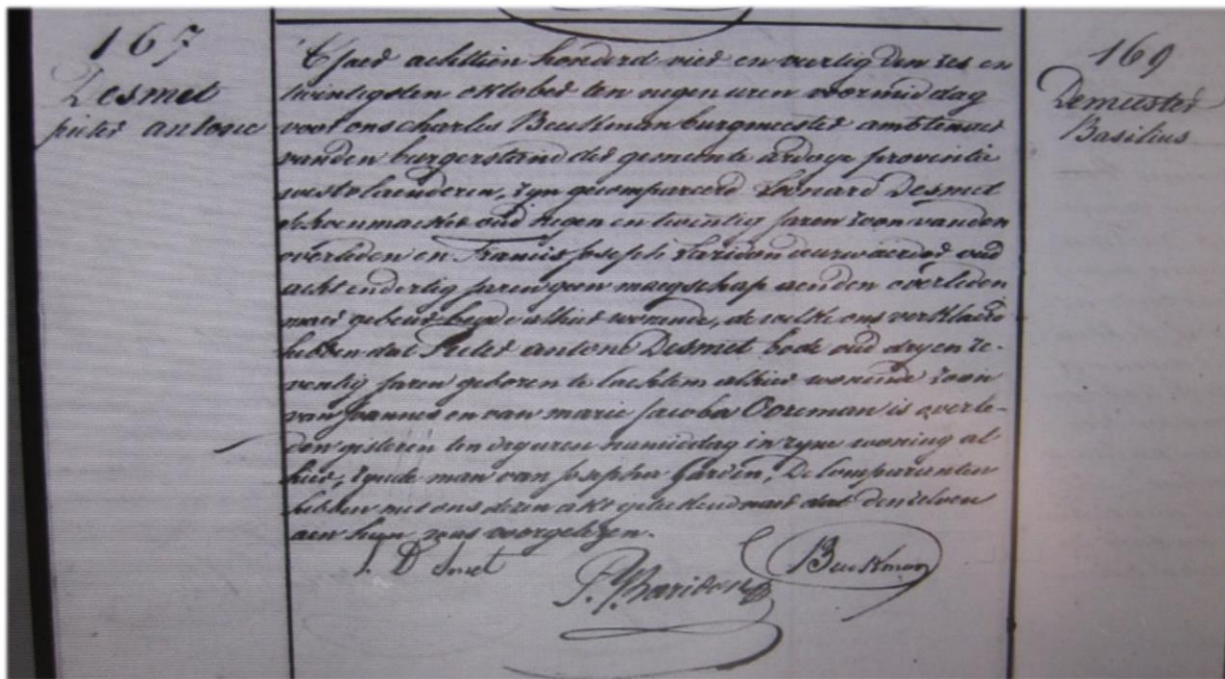 167
Desmet
pieter antone
T jaer achttien honderd vier en veertig den zes en
twintigsten oktober ten negen uren voormiddag
voor ons charles Beukman burgmeester ambtenaer
vanden burgerstand der gemeente ardoye provintie
westvlaenderen, zyn gecompareerd Leonard Desmet
schoenmaker oud negen en twintig jaren zoon vanden
overleden en Francis joseph Laridon deurwaerder oud
acht en dertig jaren geen maegschap aenden overleden
maer gebeur beyde alhier wonende, de welke ons verklaerd
hebben dat Pieter antone Desmet bode oud dry en ze-
ventig jaren geboren te lachtem alhier wonende zoon
van joannes en van marie jacoba Ooreman is overle-
den gisteren ten dry uren namiddag in zyne woning al
hier, zynde man van josepha Gardin, De comparanten
hebben met ons dezen akt geteekend naer dat denzelven
aen hun was voorgelezen.
L. D Smet
F. J. Laridon
Beukman
169
Demuster
Basilius